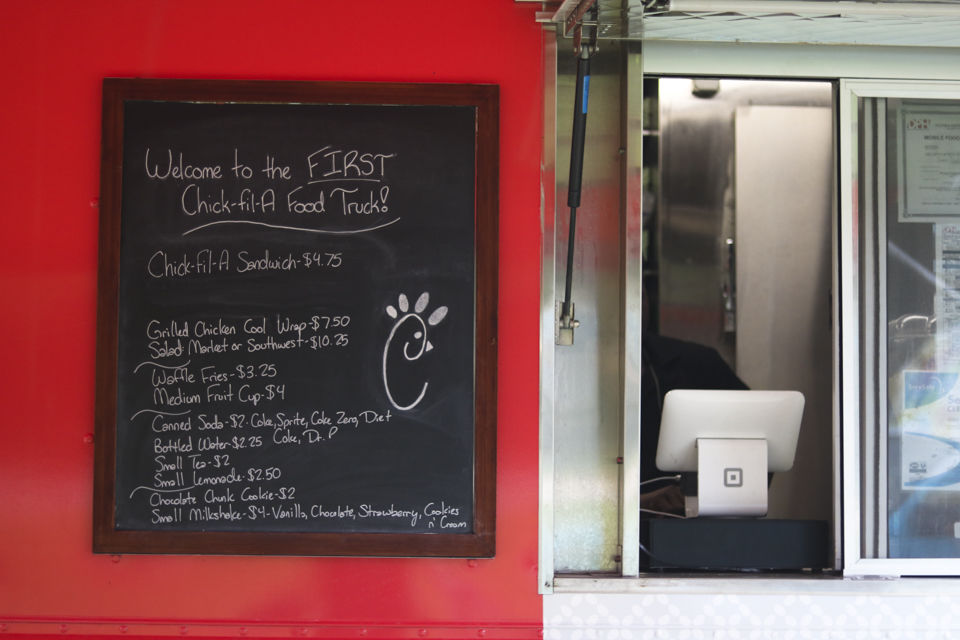 Welcome to the FIRST
Chick-fil-A Food Truck!
Chick-fil-A Sandwich-$4.75
Grilled Chicken Cool Wrap-$7.50
Salad: Market or Southwest-$10.25
Waffle Fries-$3.25
Medium Fruit Cup-$4
Canned Soda-$2-Coke, Sprite, Coke Zero, Diet
Coke, Dr. P
Bottled Water-$2.25
Small Tea-$2
Small Lemonade-$2.50
Chocolate Chunk Cookie-$2
Small Milkshake-$4-Vanilla, Chocolate, Strawberry, Cookies
n' Cream
DPH
MOBILE FOOD